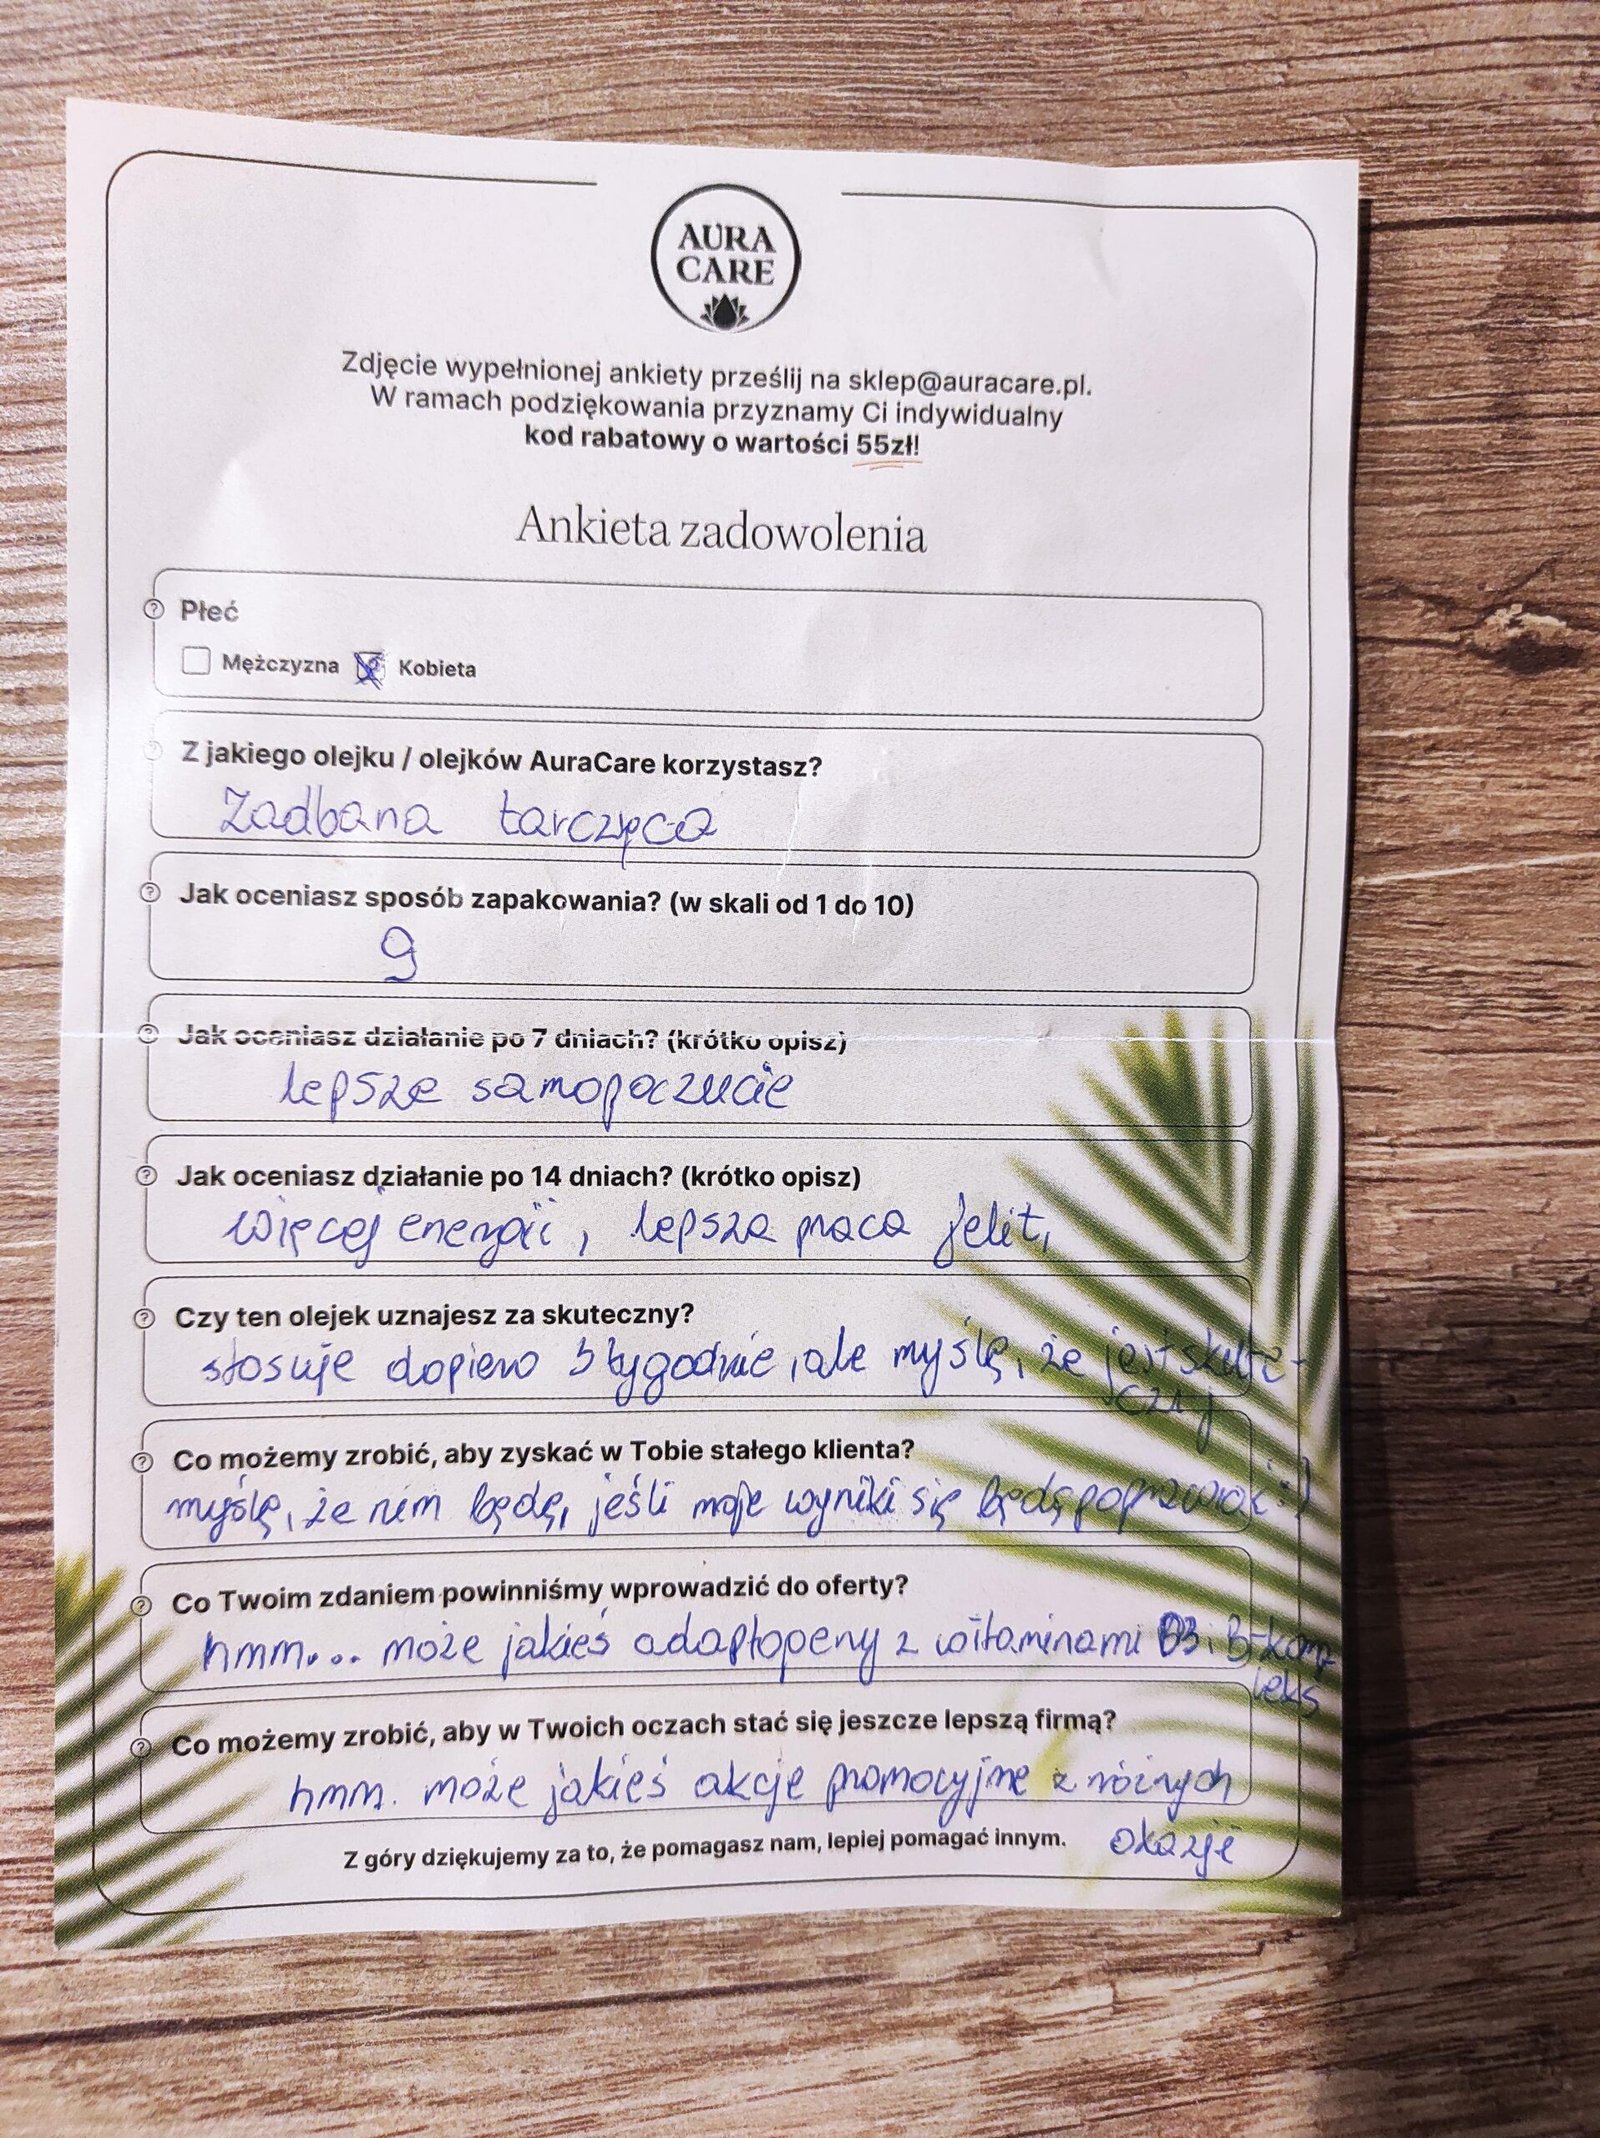 AURA
CARE
Zdjęcie wypełnionej ankiety prześlij na sklep@auracare.pl.
W ramach podziękowania przyznamy Ci indywidualny
kod rabatowy o wartości 55zł!
Ankieta zadowolenia
Płeć
Mężczyzna Kobieta
Z jakiego olejku / olejków AuraCare korzystasz?
Zadbana tarczyca
Jak oceniasz sposób zapakowania? (w skali od 1 do 10)
9
Jak oceniasz działanie po 7 dniach? (krótko opisz)
lepsze samopoczucie
Jak oceniasz działanie po 14 dniach? (krótko opisz)
więcej energii, lepsza praca jelit,
Czy ten olejek uznajesz za skuteczny?
stosuje dopiero 3 tygodnie, ale myślę, że jest skute-
czny
Co możemy zrobić, aby zyskać w Tobie stałego klienta?
myślę, że nim będę, jeśli moje wyniki się będą poprawiać :)
Co Twoim zdaniem powinniśmy wprowadzić do oferty?
hmm... może jakieś adaptogeny z witaminami D3 i B-kom-
leks
Co możemy zrobić, aby w Twoich oczach stać się jeszcze lepszą firmą?
hmm. może jakieś akcje promocyjne z różnych
okazji
Z góry dziękujemy za to, że pomagasz nam, lepiej pomagać innym.